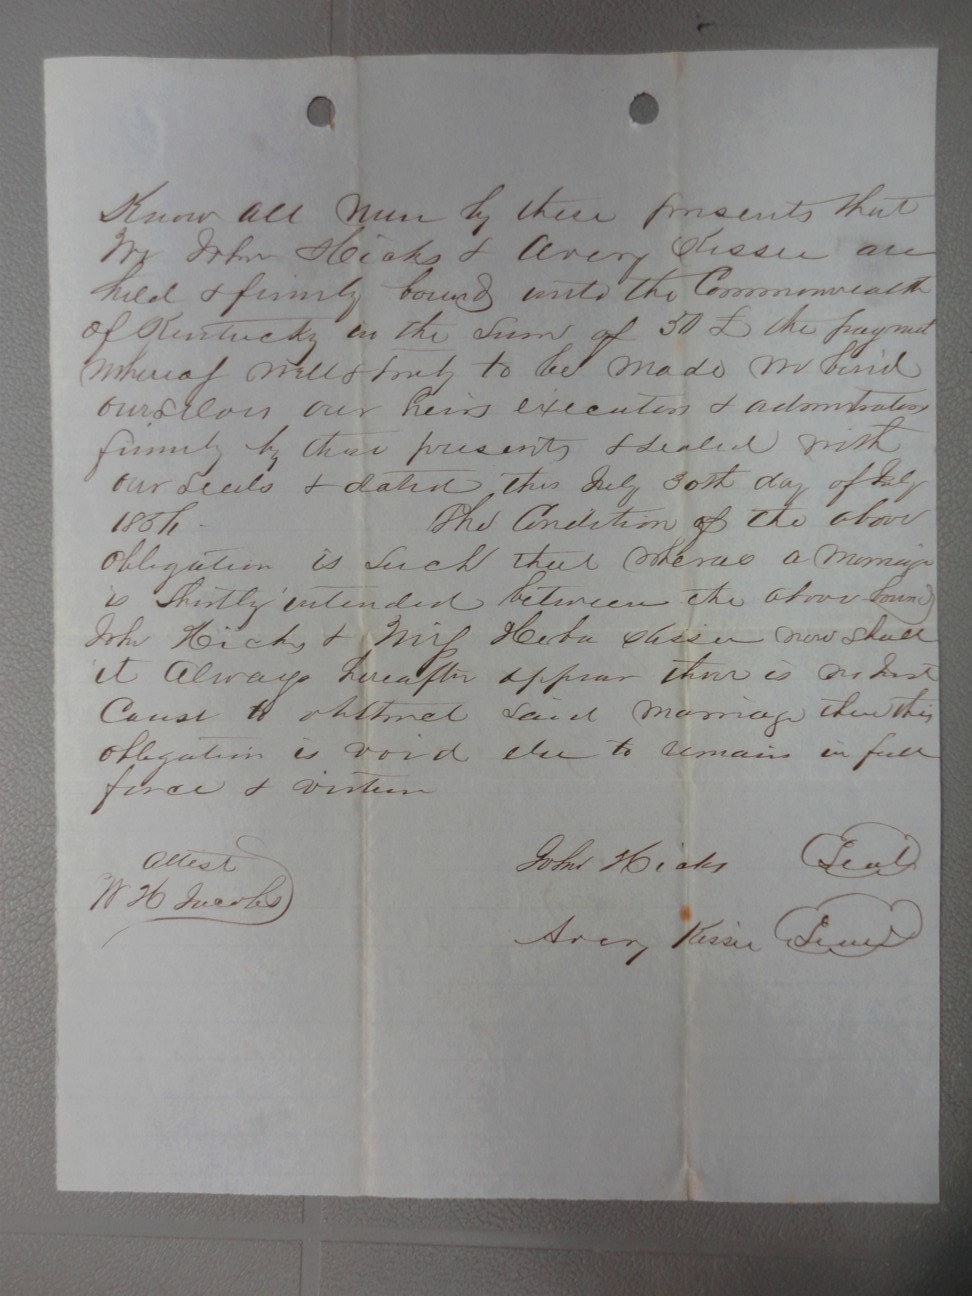 Know all Men by these presents that
We John Hicks & Avery Kissee are
held & firmly bound unto the Commonwealth
of Kentucky in the Sum of 50 £ the payment
whereof well & truly to be made we bind
ourselves our heirs executors & administrators
firmly by these presents & sealed with
our seals & dated this July 30th day of July
The Condition of the above
obligation is such that whereas a Marriage
is Shortly intended between the above bound
John Hicks & Kissee now shall
it Always hereafter appear there is no Just
Cause to obstruct said Marriage then this
obligation is void else to remain in full
force & virtue
Attest
W H Jacobs
John Hicks Seal
Avery Kissee Seal